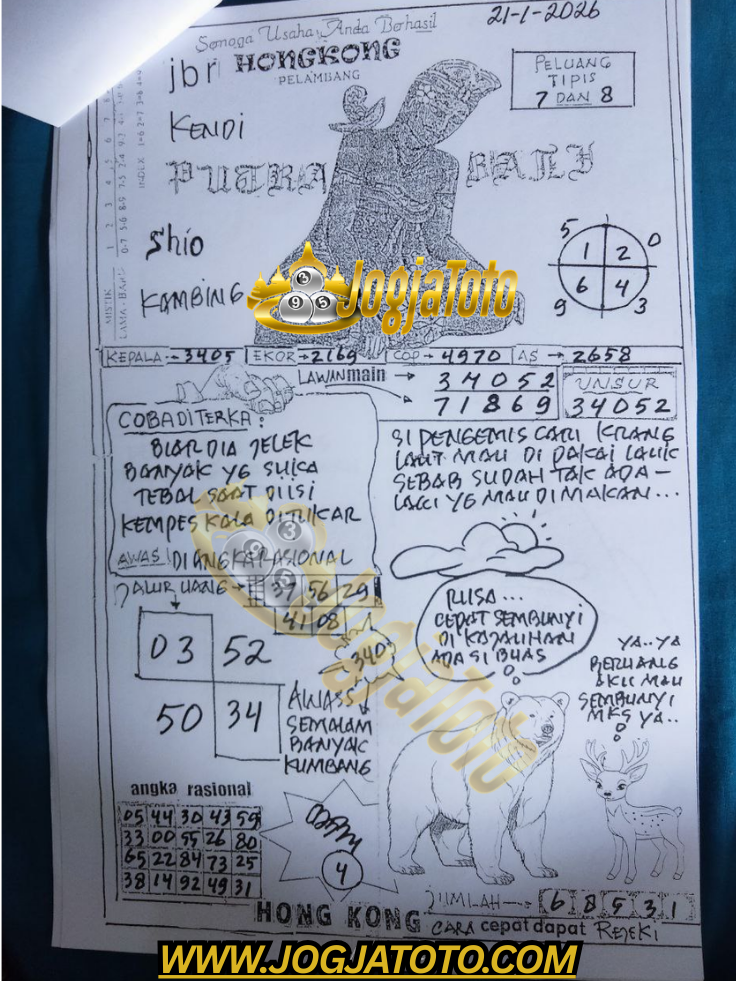 21-1-2026
Semoga Usaha Anda Berhasil
jbr HONGKONG
PELAMBANG
PELUANG
TIPIS
7 DAN 8
KENDI
PUTRA BALI
Shio
KAMBING
MISTIK
INDEX
5 0
1 2
6 4
9 3
JogjaToto
KEPALA - 3405 EKOR → 2169 COP → 4970 AS → 2658
LAWAN main → 34052
71869
UNSUR
34052
COBA DITERKA :
BIAR DIA JELEK
BANYAK YG SUKA
TEBAL SAAT DIISI
KEMPES KALA DITUKAR
AWAS! DIANGKA RASIONAL
SI PENGEMIS CARI KRANG
LAUT MAU DI PAKAI LAUK
SEBAB SUDAH TAK ADA -
LAGI YG MAU DIMAKAN...
JALUR UANG → 37 56 29
41 08
340
03 52
50 34
AWASS
SEMALAM
BANYAK
KUMBANG
RUSA...
CEPAT SEMBUNYI
DI KAJAUHAN
ADA SI BUAS
YA..YA
BERUANG
AKU MAU
SEMBUNYI
MKS YA..
JogjaToto
angka rasional
05 44 30 43 59
33 00 55 26 80
65 22 84 73 25
38 14 92 49 31
4
JUMLAH → 6 8 9 3 1
HONG KONG CARA cepat dapat REJEKI
WWW.JOGJATOTO.COM